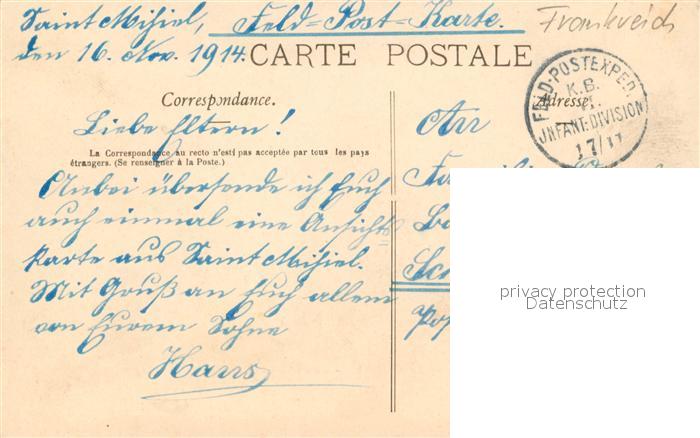 Saint Mihiel, Feld=Post=Karte. Frankreich
den 16. Nov. 1914.
CARTE POSTALE
FELD-POSTEXPED.
K.B.
INFANT.DIVISION
17/11
Correspondance.
Adresse
Liebe Eltern!
An
La Correspondance au recto n'est pas acceptée par tous les pays
étrangers. (Se renseigner à la Poste.)
Anbei übersende ich Euch
auch einmal eine Ansichts
karte aus Saint Mihiel.
Mit Gruß an Euch allem
von Eurem Sohne
Hans
privacy protection
Datenschutz